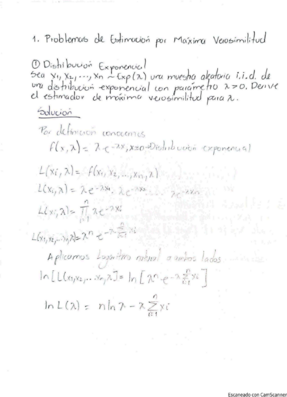 1. Problemas de Estimación por Máxima Verosimilitud
① Distribución Exponencial
Sea x₁, x₂, ..., xn ~ Exp(λ) una muestra aleatoria i.i.d. de
una distribución exponencial con parámetro λ>0. Derive
el estimador de máxima verosimilitud para λ.
Solución
Por definición conocemos
f(x,λ) = λe^{-λx}, x>0 → Distribución exponencial
L(xi,λ) = f(x₁, x₂, ..., xn, λ)
L(xi,λ) = λe^{-λx₁}, λe^{-λx₂} ... λe^{-λxn}
L(xi,λ) = ∏_{i=1}^{n} λe^{-λxi}
L(x₁,x₂,...xn,λ) = λⁿ e^{-λ∑_{n=1}^{n} xi}
Aplicamos Logaritmo natural a ambos lados
ln[L(x₁,x₂,...xn,λ)] = ln[λⁿ e^{-λ∑_{n=1}^{n} xi}]
ln L(λ) = n ln λ - λ∑_{n=1}^{n} xi
Escaneado con CamScanner